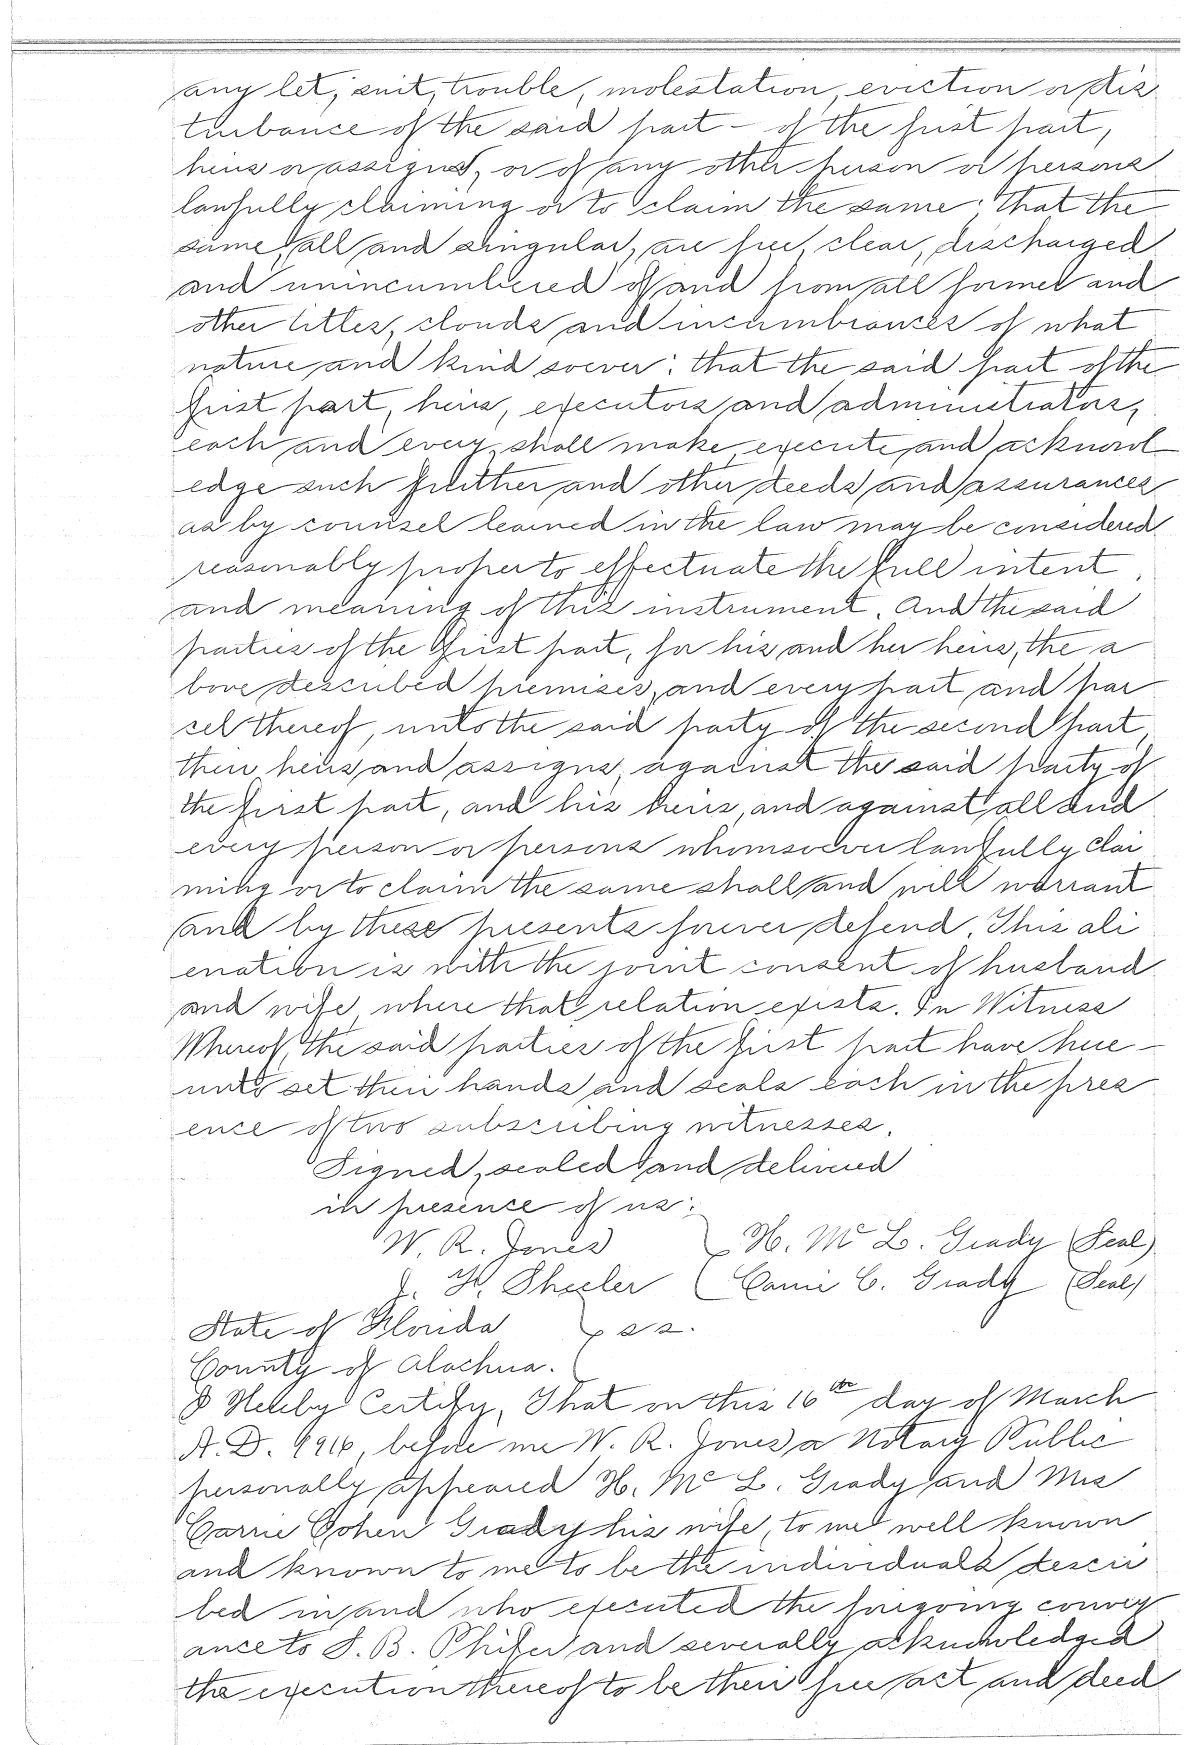 any let, suit, trouble, molestation, eviction or dis
turbance of the said part - of the first part,
heirs or assigns, or of any other person or persons
lawfully claiming or to claim the same; that the
same, all and singular, are free, clear, discharged
and unincumbered of and from all former and
other titles, clouds and incumbrances of what
nature and kind soever; that the said part of the
first part, heirs, executors and administrators,
each and every, shall make, execute and acknowl
edge such further and other deeds and assurances
as by counsel learned in the law may be considered
reasonably proper to effectuate the full intent
and meaning of this instrument. And the said
parties of the first part, for his and her heirs, the a
bove described premises, and every part and par
cel thereof, unto the said party of the second part,
their heirs and assigns, against the said party of
the first part, and his heirs, and against all and
every person or persons whomsoever lawfully clai
ming or to claim the same shall and will warrant
and by these presents forever defend. This ali
enation is with the joint consent of husband
and wife, where that relation exists. In Witness
Whereof, the said parties of the first part have here-
unto set their hands and seals each in the pres
ence of two subscribing witnesses.
Signed, sealed and delivered
in presence of us:
W. R. Jones H. Mc L. Grady (Seal)
J. H. Sheeler Carrie C. Grady (Seal)
State of Florida ss.
County of Alachua.
I Hereby Certify, That on this 16th day of March
A. D. 1916, before me W. R. Jones a Notary Public
personally appeared H. Mc L. Grady and Mrs
Carrie Cohen Grady his wife, to me well known
and known to me to be the individuals descri
bed in and who executed the foregoing convey
ance to J. B. Phifer and severally acknowledged
the execution thereof to be their free act and deed